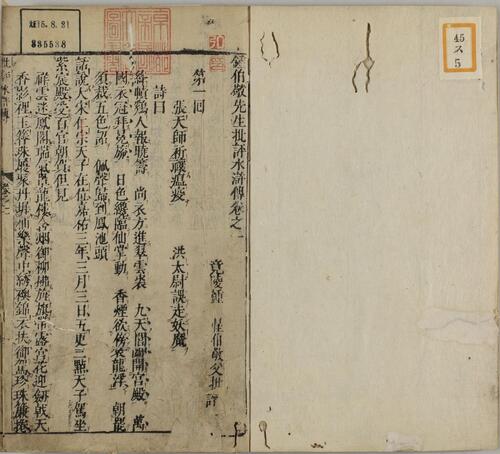 鍾伯敬先生批評水滸傳卷之一
竟陵鍾 惺伯敬父批評
第一回
張天師祈禳瘟疫 洪太尉誤走妖魔
詩曰
絳幘鷄人報曉籌 尚衣方進翠雲裘 九天閶闔開宮殿 萬
國衣冠拜冕旒 日色纔臨仙掌動 香煙欲傍袞龍浮 朝罷
須裁五色詔 佩聲歸到鳳池頭
話說大宋仁宗天子在位嘉祐三年三月三日五更三點天子駕坐
紫宸殿受百官朝賀但見
祥雲迷鳳閣瑞氣罩龍樓含烟御柳拂旌旗帶露宮花迎劍戟天
香影裡玉簪珠履聚丹墀仙樂聲中繡襖錦衣扶御駕珍珠簾捲
45
ス
5
15.8.21
335538